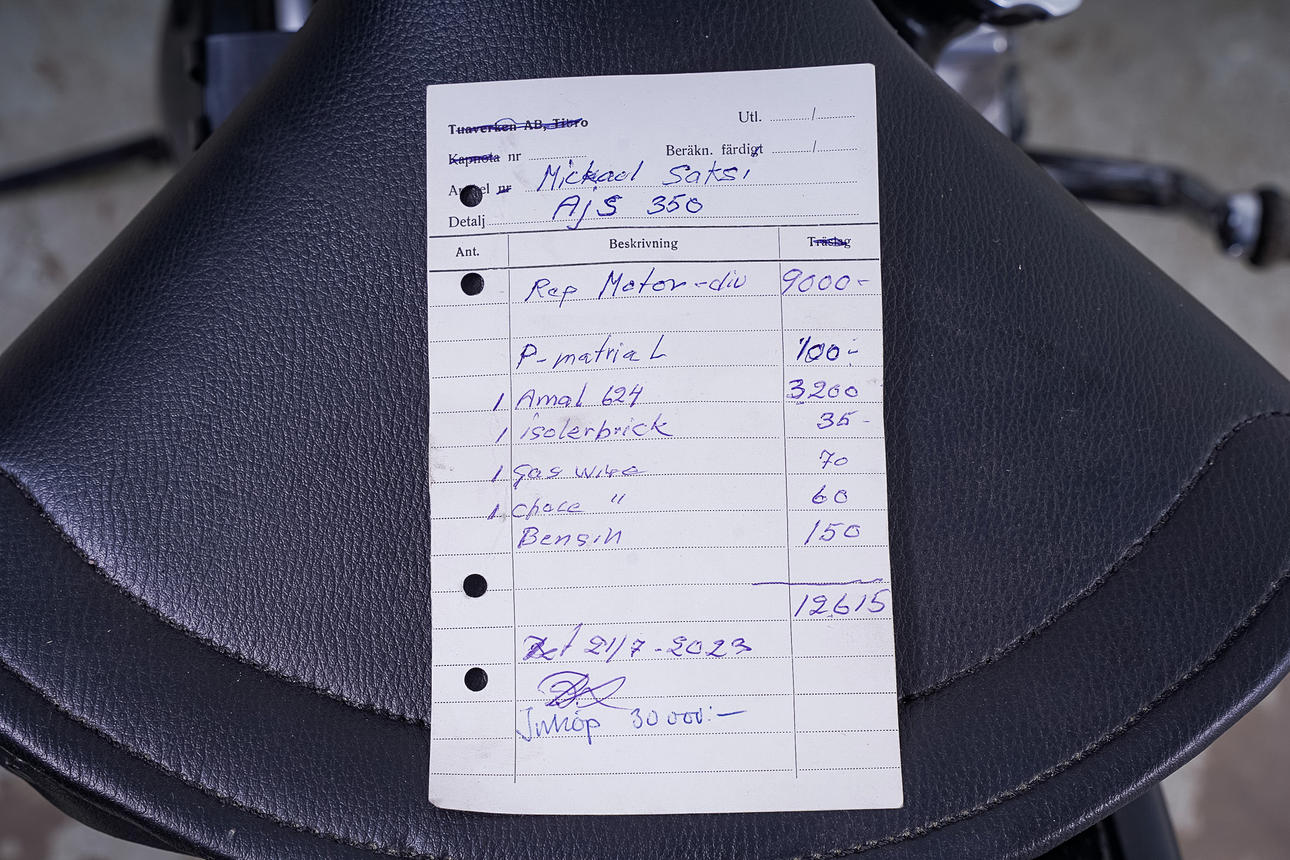 Tuaverken AB, Tibro
Utl. ........../..........
Kapnota nr ..........
Beräkn. färdigt ........../..........
Artikel nr Mickael Saksi
Detalj AjS 350
Ant. Beskrivning Träslag
Rep Motor-div 9000-
P-matrial 100:-
1 Amal 624 3200
1 isolerbrick 35-
1 gas wire 70
1 choce " 60
Bensin 150
12615
21/7-2023
Inköp 30 000:-